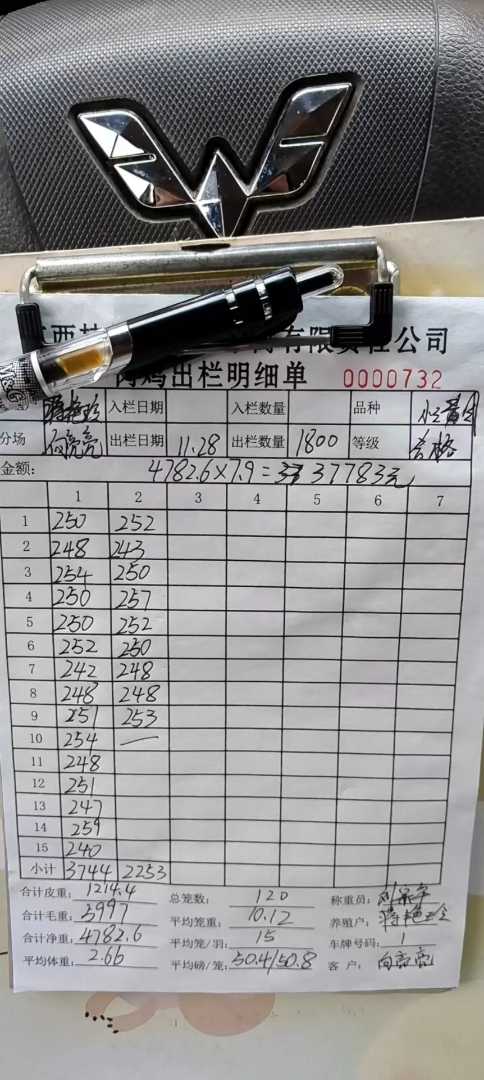 有限责任公司
肉鸡出栏明细单 0000732
入栏日期 入栏数量 品种
分场 出栏日期 11.28 出栏数量 1800 等级 合格
金额: 4782.6×7.9= 37783元
1 2 3 4 5 6 7
1 250 252
2 248 243
3 254 250
4 250 257
5 250 252
6 252 250
7 242 248
8 248 248
9 251 253
10 254 —
11 248
12 251
13 247
14 259
15 240
小计 3744 2253
合计皮重: 1214.4 总笼数: 120 称重员:
合计毛重: 5997 平均笼重: 10.12 养殖户: 蒋艳玲
合计净重: 4782.6 平均笼/羽: 15 车牌号码: 1
平均体重: 2.66 平均磅/笼: 50.4/50.8 客 户: 向亮亮